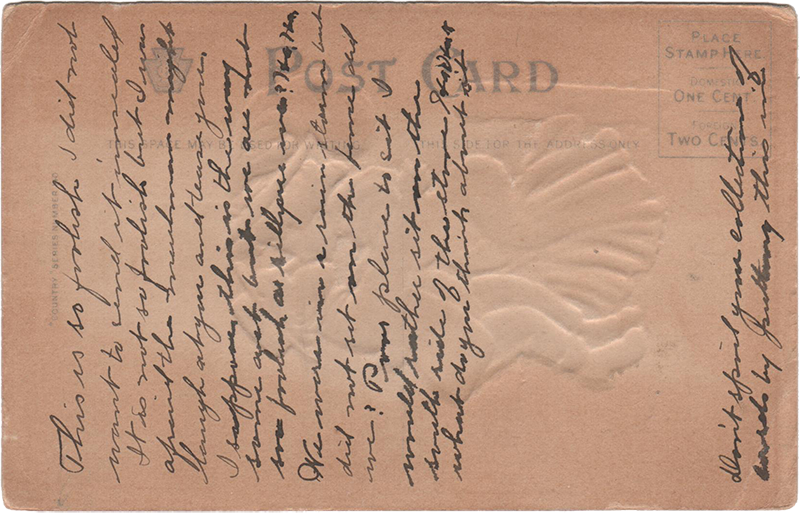 POST CARD
THIS SPACE MAY BE USED FOR WRITING
THIS SIDE FOR THE ADDRESS ONLY.
PLACE
STAMP HERE
DOMESTIC
ONE CENT.
FOREIGN
TWO CENTS.
"COUNTRY" SERIES NUMBER
This is so foolish I did not
want to send it unsealed
It is not so foolish but I was
afraid the mailman might
laugh at you and tease you.
I suppose this is the way
some act but we are not
so foolish as silly are we?
We were in a rain storm but
did not sit on the fence did
we? Poor place to sit I
would rather sit on the
south side of the stove
what do you think about it
Don't spoil your collection of
cards by putting this in